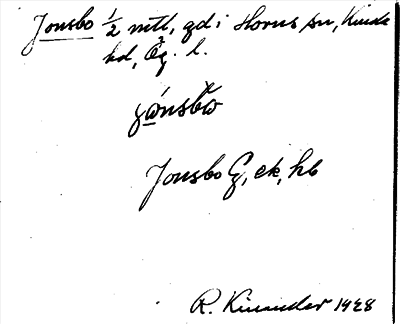 Jonsbo ½ mtl, gd i Horns sn, Kinda
hd, Ög. l.
Jonsbo G, ek, hb
R. Kinander 1928